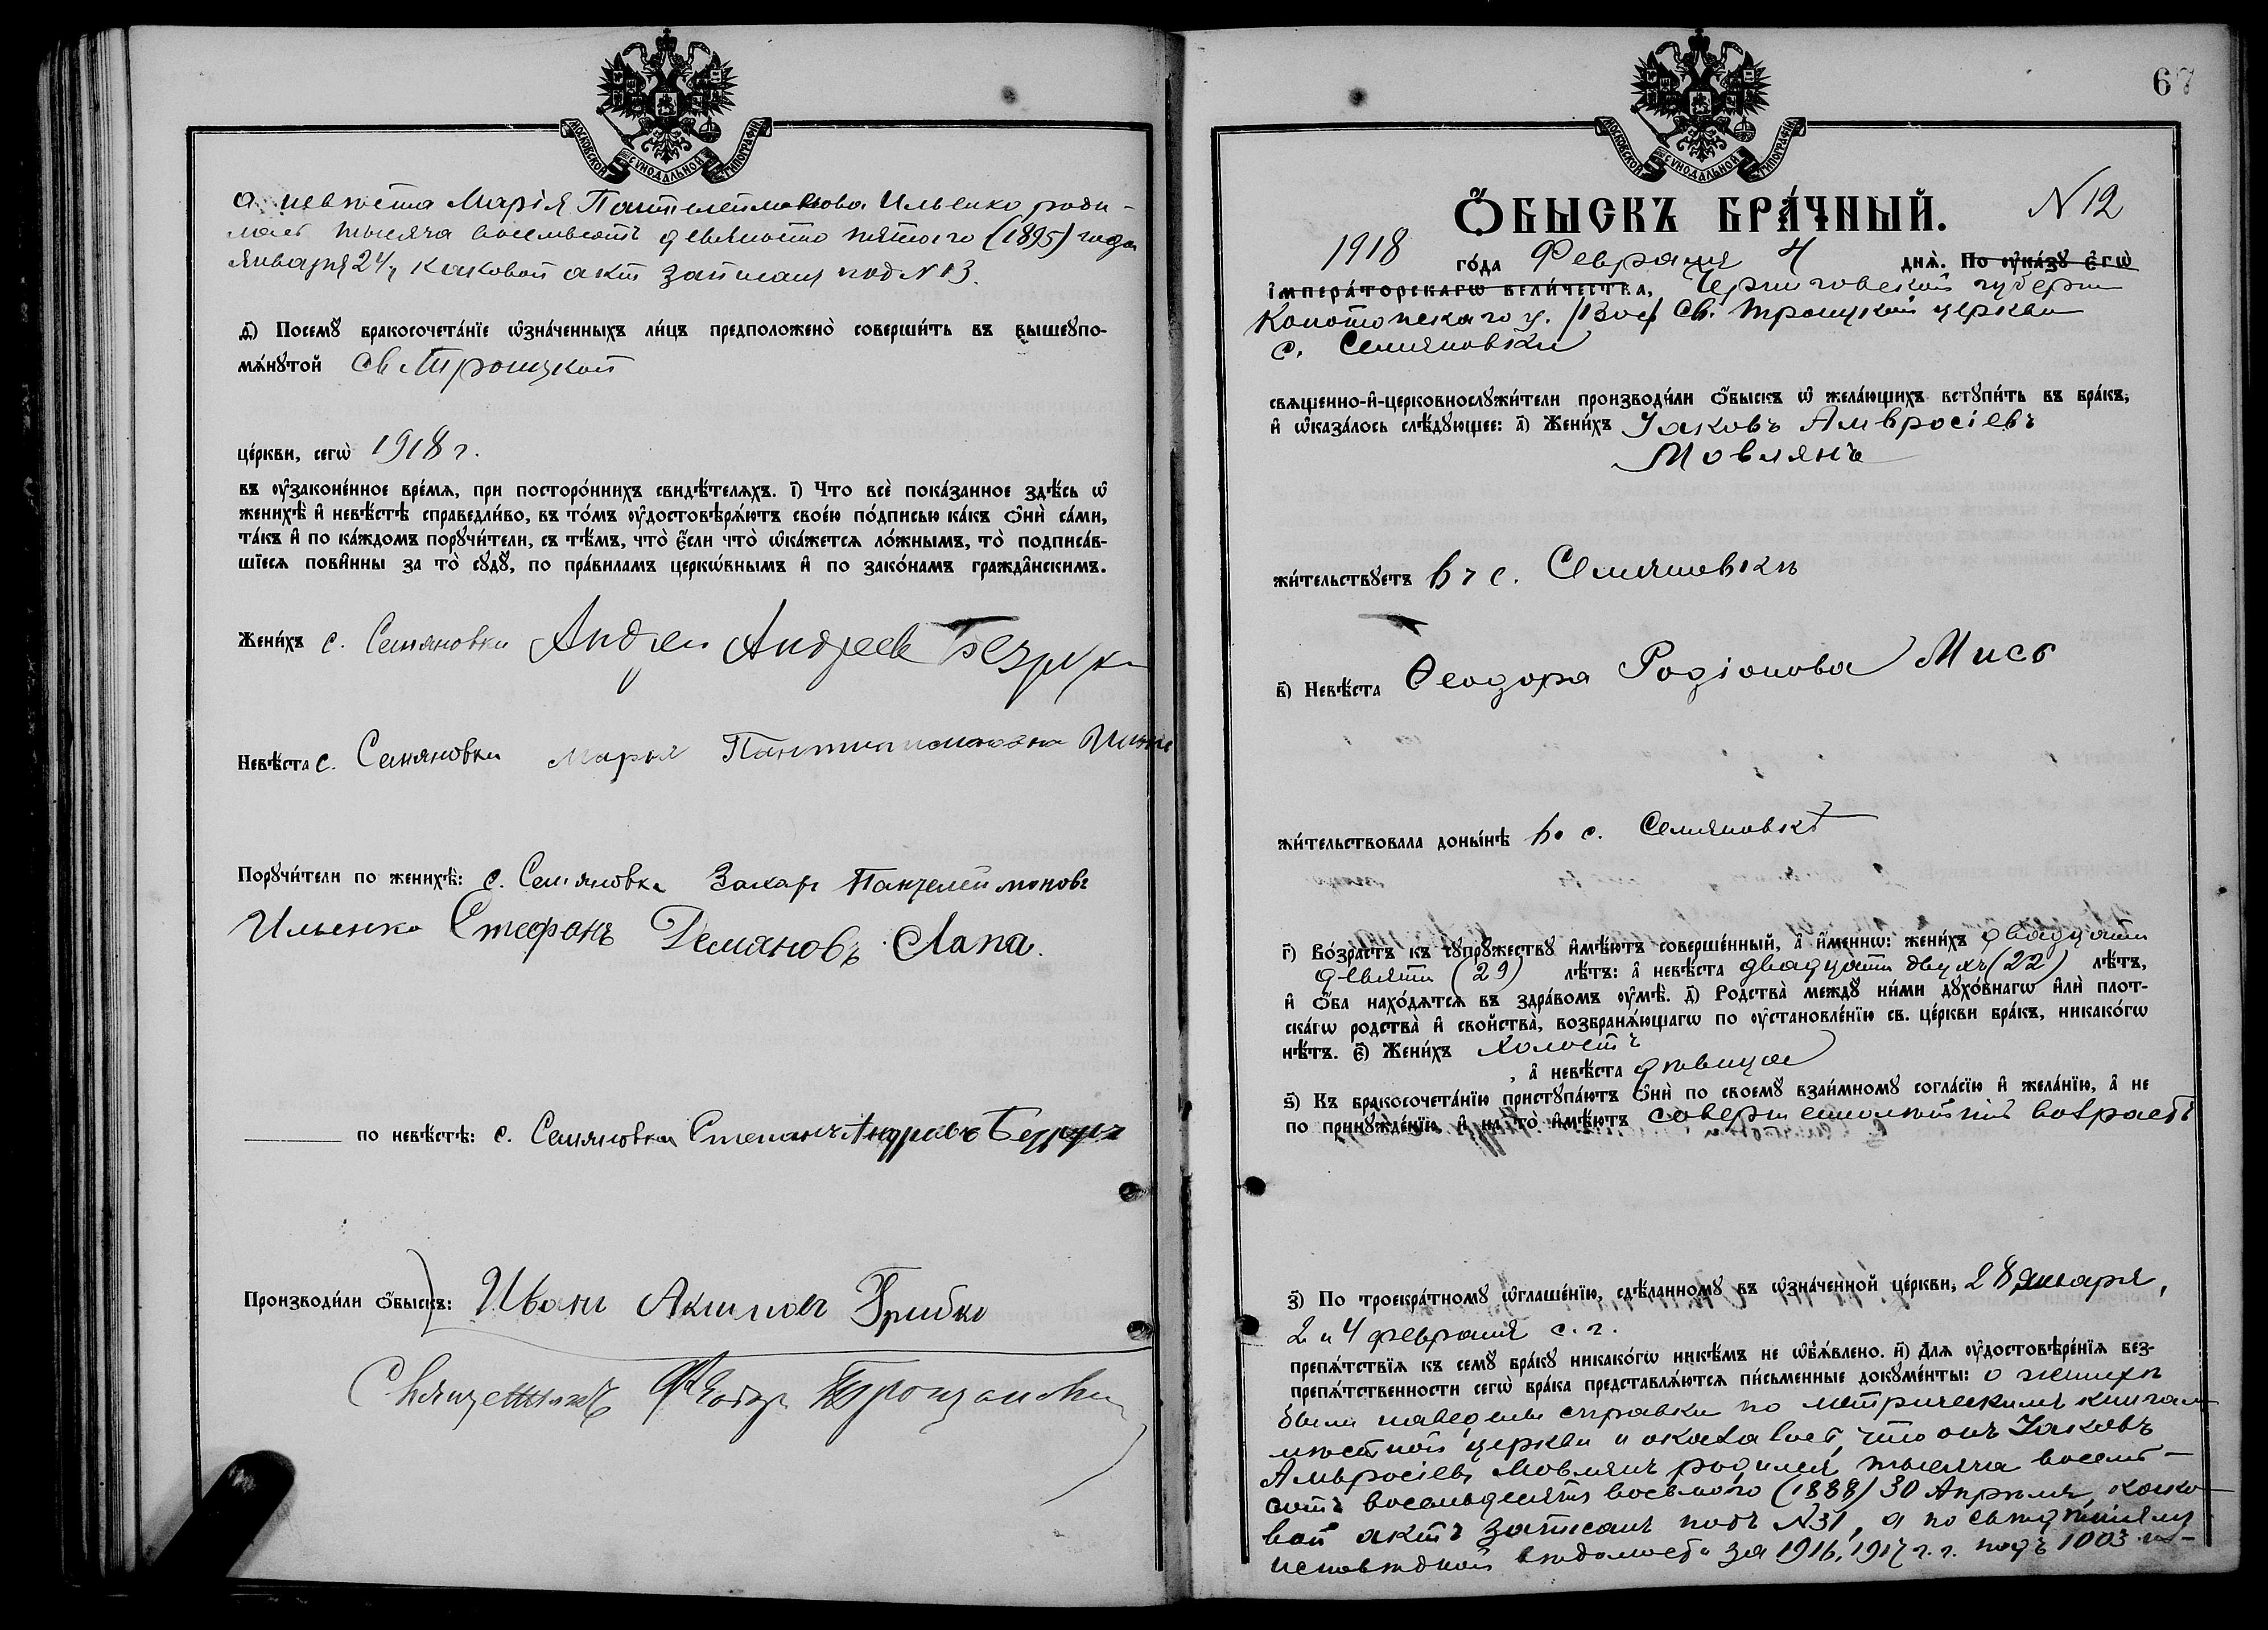 МОСКОВСКОЙ СѴНОДАЛЬНОЙ ТИПОГРАФІИ
а невѣста Марія Пантелеймонова Ильенко роди-
лась тысяча восемьсотъ девяносто пятого (1895) года
января 24, каковой актъ записанъ под N 13.
д҃) Посемꙋ̀ бракосочета́нїе ѡ҆зна́ченныхъ ли́цъ предположено̀ соверши́ть въ вышеꙋпо-
мѧ́нꙋтой Св. Троицкой
це́ркви, сегѡ̀ 1918 г.
въ ᲂу҆зако́ненное вре́мѧ, при посторо́ннихъ свидѣ́телѧхъ. і҃) Что всѐ пока́занное здѣ́сь ѡ҆
женихѣ̀ и҆ невѣ́стѣ справедли́во, въ то́мъ ᲂу҆достовѣрѧ́ютъ свое́ю по́дписью ка́къ ѻ҆нѝ са́ми,
та́къ и҆ по ка́ждомъ порꙋчи́тели, съ тѣ́мъ, что̀ є҆́сли что̀ ѡ҆ка́жетсѧ ло́жнымъ, то̀ подписа́в-
шїесѧ пови́нны за то̀ сꙋдꙋ̀, по пра́виламъ церкѡ́внымъ и҆ по зако́намъ гражда̑нскимъ.
Жени́хъ с. Семяновки Андрей Андреев Безрук
Невѣ́ста с. Семяновки Марья
Порꙋчи́тели по женихѣ̀: с. Семяновка Захар Пантелеймоновъ
Ильенко Стефанъ Демяновъ Лапа.
по невѣ́стѣ: с. Семяновка Степанъ Андреевъ
Производи́ли ѻ҆́быскъ: Иванъ Акимовъ Грибко
Священникъ Ѳеодор
МОСКОВСКОЙ СѴНОДАЛЬНОЙ ТИПОГРАФІИ
67
Ѻ҆́БЫСКЪ БРА́ЧНЫЙ. N 12
1918 го́да Февраля 4 днѧ̀. По ᲂу҆ка́зꙋ є҆гѡ̀
і҆мпера́торскагѡ вели́чества, Черниговской губерніи
Конотопскаго у. Св. Троицкой церкви
с. Семяновки
свѧще́нно-и҆-церковнослꙋжи́тели производи́ли ѻ҆́быскъ ѡ҆ жела́ющихъ встꙋпи́ть въ бра́къ,
и҆ ѡ҆каза́лось слѣ́дꙋющее: а҃) Жени́хъ Іаковъ Амвросіевъ
Мовлянъ
жи́тельствꙋетъ въ с. Семяновкѣ
в҃) Невѣ́ста Ѳеодора Родіонова Мись
жи́тельствовала доны́нѣ въ с. Семяновкѣ
г҃) Во́зрастъ къ сꙋпрꙋ́жествꙋ и҆мѣ́ютъ соверше́нный, а҆ и҆́меннѡ: жени́хъ двадцати
девяти (29) лѣ́тъ: а҆ невѣ́ста двадцати двухъ (22) лѣ́тъ,
и҆ ѻ҆́ба нахо́дѧтсѧ въ здра́вомъ ᲂу҆мѣ̀. д҃) Родства̀ междꙋ̀ ни́ми дꙋхо́внагѡ и҆лѝ плот-
ска́гѡ родства̀ и҆ свойства̀, возбранѧ́ющагѡ по ᲂу҆становле́нїю св. це́ркви бра́къ, никако́гѡ
нѣ́тъ. є҃) Жени́хъ холостъ
, а҆ невѣ́ста дѣвица
ѕ҃) Къ бракосочета́нїю пристꙋпа́ютъ ѻ҆нѝ по своемꙋ̀ взаи́мномꙋ согла́сїю и҆ жела́нїю, а҆ не
по принꙋжде́нїю, и҆ на то̀ и҆мѣ́ютъ совершеннолѣтній возрастъ
з҃) По троекра́тномꙋ ѡ҆глаше́нїю, сдѣ́ланномꙋ въ ѡ҆зна́ченной це́ркви, 28 января,
2 и 4 февраля с. г.
препѧ́тствїѧ къ семꙋ̀ бра́кꙋ никако́гѡ никѣ́мъ не ѡ҆б̾ѧ́влено. и҃) Длѧ ᲂу҆достовѣре́нїѧ без-
препѧ́тственности сегѡ̀ бра́ка представлѧ́ютсѧ пи́сьменные докꙋме́нты: о женихѣ
были наведены справки по метрическимъ книгамъ
мѣстной церкви и оказалось, что онъ Іаковъ
Амвросіевъ Мовлянъ родился тысяча восемь-
сотъ восемьдесятъ восьмого (1888) 30 Апрѣля, како-
вой актъ записанъ подъ N 31, а по
исповѣдной вѣдомости за 1916, 1917 г.г. подъ 1003